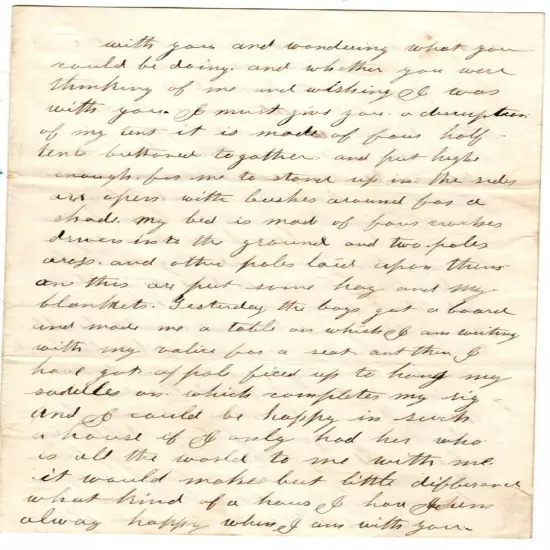 with you and wondering what you
could be doing. and whether you were
thinking of me and wishing I was
with you. I must give you a discruption
of my tent it is made of four half-
tents buttoned togather and put high
enough for me to stand up in. the sides
are open with bushes around for a
shade. my bed is mad of four croches
driven into the ground and two poles
across. and other poles laid upon them
on this are put some hay and my
blankets. Yesterday the boys got a board
and made me a table on which I am writing
with my valice for a seat. and then I
have got a pole fixed up to hang my
saddles on which completes my rig-
and I could be happy in such
a house if I only had her who
is all the world to me with me.
it would make but little difference
what kind of a hous I hav
alway happy when I am with you-